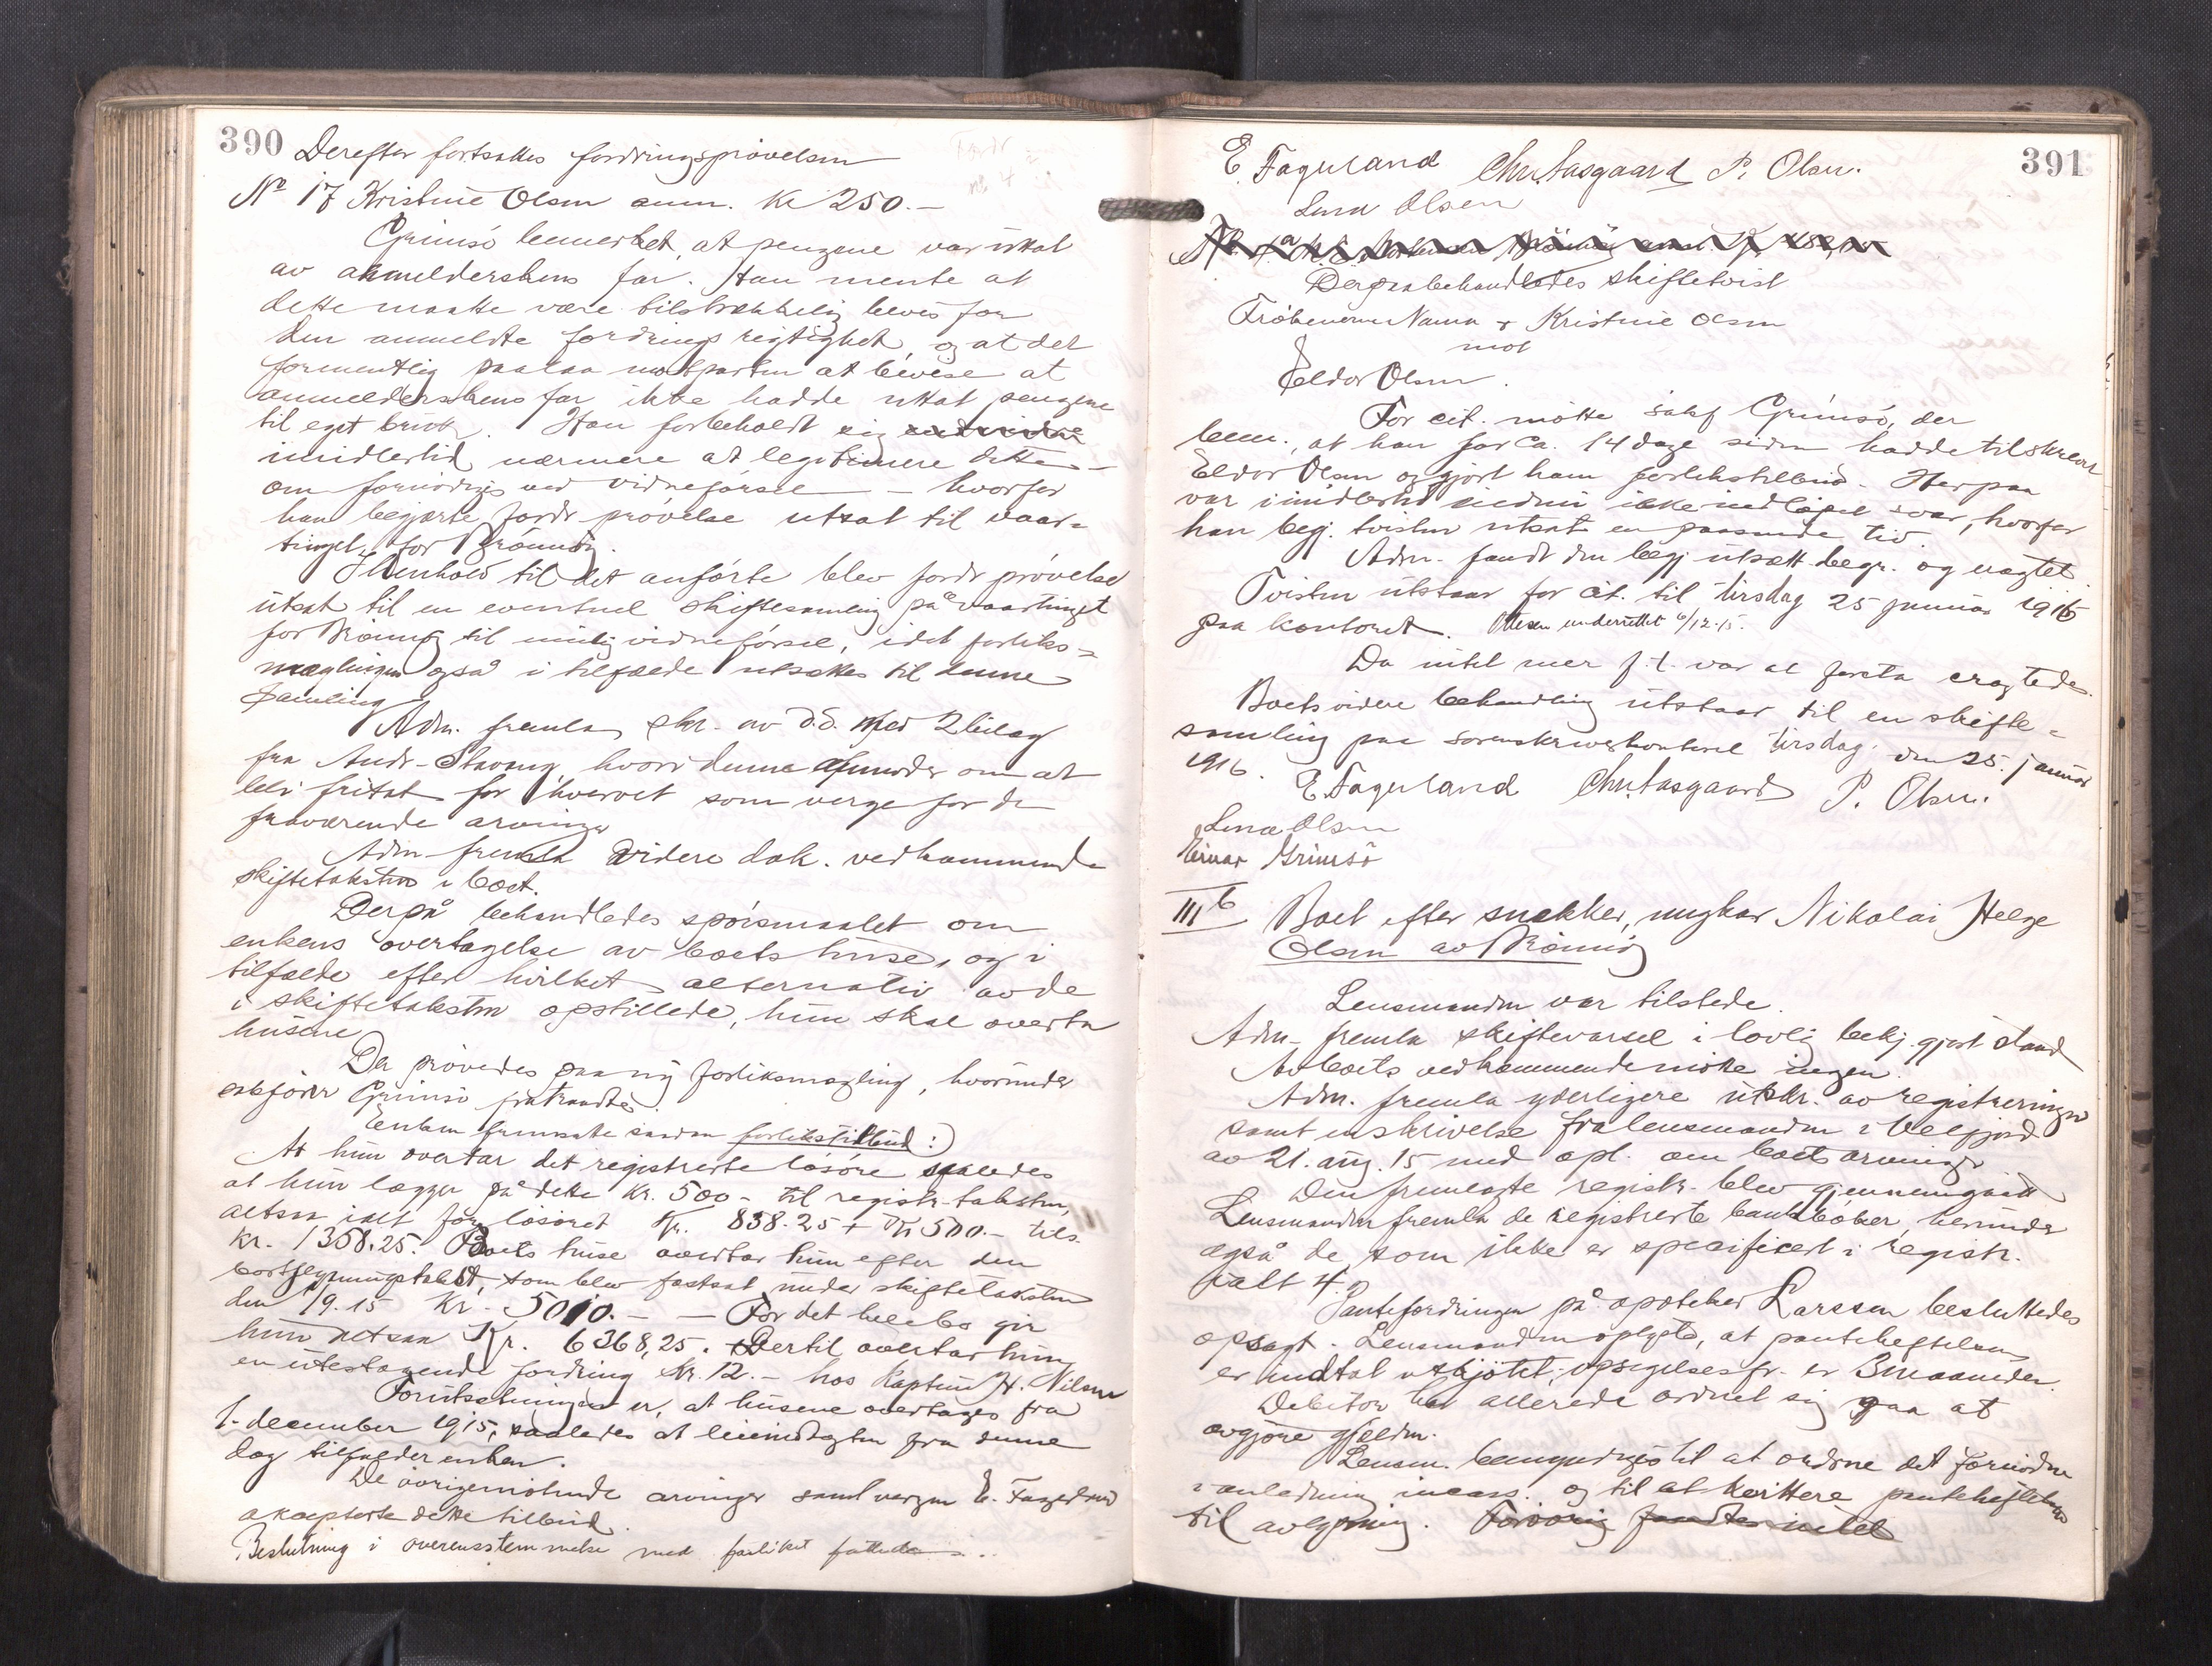 390 Derefter fortsattes fordringsprøvelsen
No 17 Kristine Olsen anm. Kr 250.-
Grimsö bemerket, at pengene var uttat
av anmelderskens far. Han mente at
dette maatte være tilstrækkelig bevis for
den anmeldte fordrings rigtighet, og at det
formentlig paalaa motparten at bevise at
anmelderskens far ikke hadde uttat pengene
til eget bruk. Han forbeholdt sig
imidlertid nærmere at legitimere dette -
om fornödiges ved vidneförsel - hvorfor
han begjærte fordr prövelse utsat til vaar-
tinget for Brönnöy.
I henhold til det anförte blev fordr prövelse
utsat til en eventuel skiftesamling på vaartinget
for Brönnöy til mulig vidneförsel, idet forliks-
mæglingen også i tilfælde utsættes til denne
samling
Adm. fremla skr. av d.d. med 2 bilag
fra Andr. Stavang, hvori denne anmoder om at
bli fritat for hvervet som verge for de
fraværende arvinger
Adm fremla videre dok. vedkommende
skiftetaksten i boet.
Derpå behandledes spörsmaalet om
enkens overtagelse av boets huse, og i
tilfælde efter hvilket alternativ av de
i skiftetaksten opstillede, hun skal overta
husene
Der prövedes paa ny forliksmægling, hvorunder
sakförer Grimsö fratraadte.
Enken fremsatte saadan forlikstilbud:)
At hun overtar det registrerte lösöre saaledes
at hun lægger på dette Kr. 500- til registr. taksten,
altsaa ialt for lösöret Kr. 858.25 + Kr 500.- tils.
Kr. 1358.25. Boets huse overtar hun efter den
bortbygningstakst, som blev fastsat under skiftetaksten
den 19.15 Kr. 5010.- - For det hele bo gir
hun altsaa Kr. 6368,25. + Dertil overtar hun
en utestaaende fordring Kr. 12.- hos Kaptein H. Nilsen
Forutsetningen er, at husene overtages fra
1. december 1915, saaledes at leieindtægten fra denne
dag tilfalder enken.
De övrige mötende arvinger samt vergen E. Fagerland
aksepterte dette tilbud.
Beslutning i overensstemmelse med forliket fattedes.
391
E. Fagerland Chr. Aasgaard P. Olsen.
Lena Olsen
Derpaa behandledes skiftetvist
Frökenerne Nanna & Kristine Olsen
mot
Eldor Olsen.
For cit. mötte sakf Grimsö, der
bem., at han for ca. 14 dage siden hadde tilskrevet
Eldor Olsen og gjort ham forlikstilbud. Herpaa
var imidlertid endnu ikke indlöpet svar, hvorfor
han beg. tvisten utsat en passende tid.
Adm. fandt den begj utsætt. begr. og eragtet
Tvisten utstaar for cit. til tirsdag 25 januar 1916
paa kontoret. Olsen underrettet 6/12-15.
Da intet mer f.t. var at foreta eragtedes
Boets videre behandling utstaar til en skifte-
samling paa sorenskriverkontoret tirsdag den 25. januar
1916. E. Fagerland Chr. Aasgaard P. Olsen.
Lena Olsen
Einar Grimsö
III b Boet efter snekker, ungkar Nikolai Helge
Olsen av Brönnöy
Lensmanden var tilstede.
Adm. fremla skiftevarsel i lovlig bekj.gjort stand
Av boets vedkommende mötte ingen.
Adm. fremla yderligere utskr. av registreringen
samt en skrivelse fra lensmanden i Velfjord
av 21. aug. 15 med opl. om boets arvinger
Den fremlagte registr. blev gjennemgaat
Lensmanden fremla de registrerte bankböker, herunder
også de som ikke er specificert i registr.
ialt 4.
Pantefordringen på apoteker Larssen besluttedes
opsagt. Lensmanden oplyste, at panteheftelsen
er indtat i skjötet; opsigelsesfr. er 3 maaneder.
Debitor har allerede ordnet sig paa at
avgjöre gjælden.
Lensm. bemyndiges til at ordne det fornödne
i anledning incass. og til at kvittere panteheftelsen
til avlysning. Forövrig fandtes intet